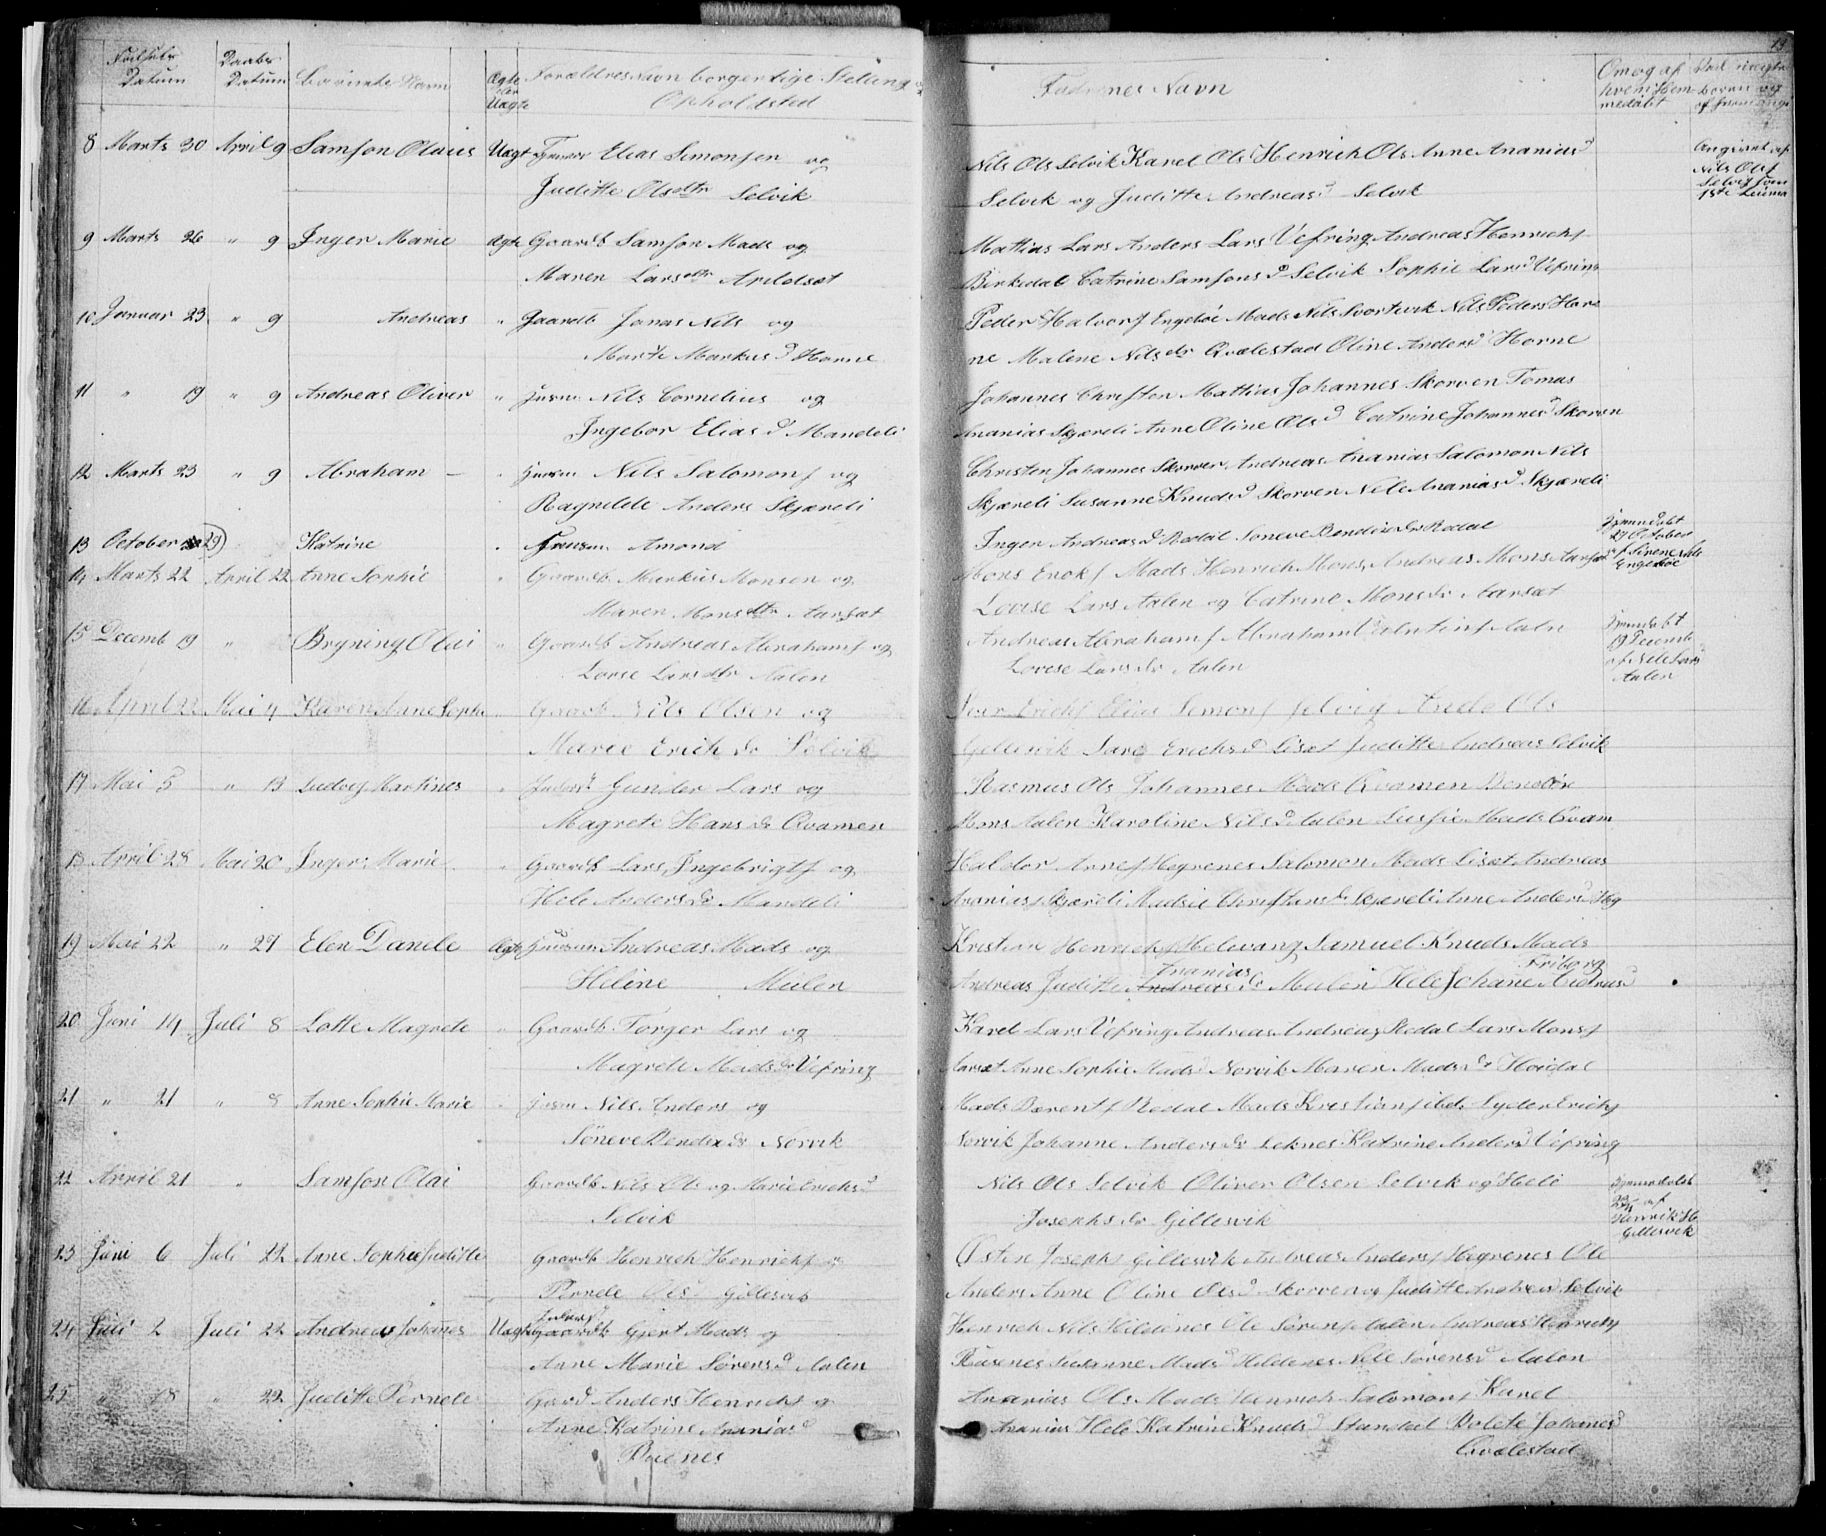 13
Fødsels Datum
Daabs Datum
Barnets Navn
Ægte eller Uægte
Forældres Navn borgerlige Stilling og Opholdsted
Faddernes Navn
Om og af hvem hjemmedøbt
8 Marts 30 April 9 Samson Olaus Uægt Elias Simonsen og
Juditte Olsdtr Selvik
Nils Ols Selvik Karel Ols Henrich Ols Anne Ananias d
Selvik og Juditte Andreas d Selvik
Angivet af
Nils Ols
Selvig som
1ste Leierm
9 Marts 26 " 9 Inger Marie Ægte Gaardb Samson Mads og
Maren Larsdtr Arildset
Mathias Lars Anders Lars Vefring Andreas Henrichs
Birkedal Catrine Samsons d Selvik Sophie Lars d Vefring
10 Januar 23 " 9 Andreas " Gaardb Jonas Nils og
Marte Markus d Horne
Peder Halvors Engebøe Mads Nils Svortevik Nils Peders Hor
ne Malene Nilsdr Qvalestad Oline Anders d Horne
11 " 19 " 9 Andreas Oliver " Nils Cornelius og
Ingebor Elias d Mandeli
Johannes Christen Mathias Johannes Skorven Tomas
Ananias Skjæreli Anne Oline Ols d Catrine Johannes d Skorven
12 Marts 23 " 9 Abraham — " Nils Salomons og
Ragnilde Anders Skjæreli
Christen Johannes Skorven Andreas Ananias Salomon Nils
Skjæreli Susanne Knuds d Skorven Nille Ananias d Skjæreli
13 October 29 Katrine " Amond
Inger Andreas d Redal Søneve Bendix dr Redal
Hjemmedøbt
29 October
af Sirene Nils
Engebøe
14 Marts 22 April 22 Anne Sophie " Gaardb Markus Monsen og
Maren Monsdtr Aarset
Mons Enoks Mads Henrich Mons Andreas Mons Aarset
Lovise Lars Aalen og Catrine Monsdr Aarset
15 Decemb 19 " Bryning Olai " Gaardb Andreas Abrahams og
Lovise Larsdtr Aalen
Andreas Abrahams Abraham Aalen
Lovise Larsdr Aalen
Hjemdøbt
19 Decemb
af Nils Lars
Aalen
16 April 22 Mai 4 Karen Anne Sophi " Gaardb Nils Olsen og
Marie Erichdr Selvik
Iver Erichs Elias Simons Selvig Ande Ols
Gillesvik Sara Erichs d Liset Juditte Andreas Selvik
17 Mai 5 " 13 Ludvig Martines " Gunder Lars og
Magrete Hans dr Qvamen
Rasmus Ols Johannes Mads Qvamen Bendix
Mons Aalen Karoline Nils d Aalen Lussie Mads Qvam
18 April 28 Mai 20 Inger Marie " Gaardb Lars Ingebrigts og
Hele Andersdr Mandeli
Haldor Annes Hegrenes Salomon Mads Liset Andreas
Ananias Skjæreli Madsie Christians d Skjæreli Anne Anders d Heg
19 Mai 22 " 27 Elen Danele Ægte Andreas Mads og
Heline Mulen
Kristian Henrichs Helevang Samuel Knuds Mads
Friborg
Andreas Juditte Ananias dr Mulen Hele Johane Andreas d
20 Juni 14 Juli 8 Lotte Magrete " Gaardb Torger Lars og
Magrete Mads dr Vefring
Karel Lars Vefring Andreas Andreas Redal Lars Mons
Aarset Anne Sophie Mads d Norvik Maren Mads dr Hoidal
21 " 21 " 8 Anne Sophie Marie " Nils Anders og
Søneve Bendixdr Norvik
Mads Bærents Redal Mads Kristians ibd Lyder Erichs
Norvik Johanne Andersdr Leknes Katrine Anders d Vefring
22 April 21 " Samson Olai Gaardb Nils Ols og Marie Erichs d
Selvik
Nils Ols Selvik Oliver Olsen Selvik og Hele
Josephsdr Gillesvik
Hjemmedøbt
23/4 af
Henrik H
Gillesvik
23 Juni 6 Juli 22 Anne Sophie Juditte Gaardb Henrich Henrichs og
Pernele Ols d Gillesvik
Østen Josephs Gillesvik Andreas Anders Hegrenes Ole
Anders Anne Oline Ols d Skorven og Juditte Andreas d Selvik
24 Juli 2 Juli 22 Andreas Johanes Uægte Gjert Mads og
Anne Marie Sørens d Aalen
Henrich Nils Hildenes Ole Sørens Aalen Andreas Henrichs
Rusenes Susanne Mads d Hildenes Nille Sørens d Aalen
25 " 18 " 22 Juditte Pernele Anders Henrichs og
Anne Katrine Ananias d
Ananias Ols Mads Henrich Salomons Karel
Ananias Hele Katrine Knuds d Standal Bolete Johanes d
Qvalestad